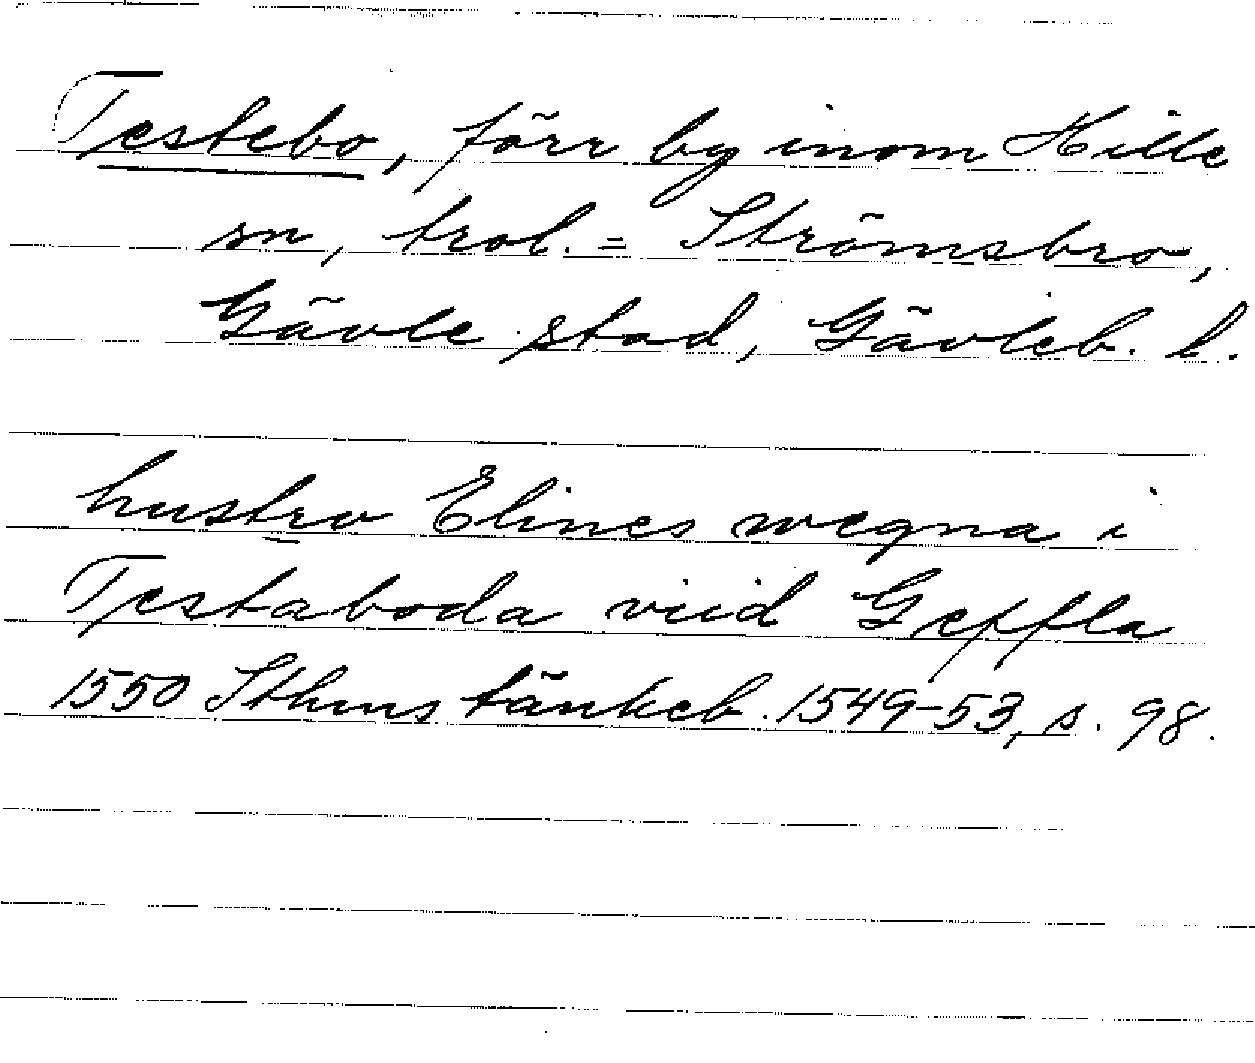 Testebo, förr by inom Hille
sn, trol. = Strömsbro,
Gävle stad, Gävleb. l.
hustro Elines wegna i
Testaboda viid Geffla
1550 Sthms tänkeb. 1549-53, s. 98.